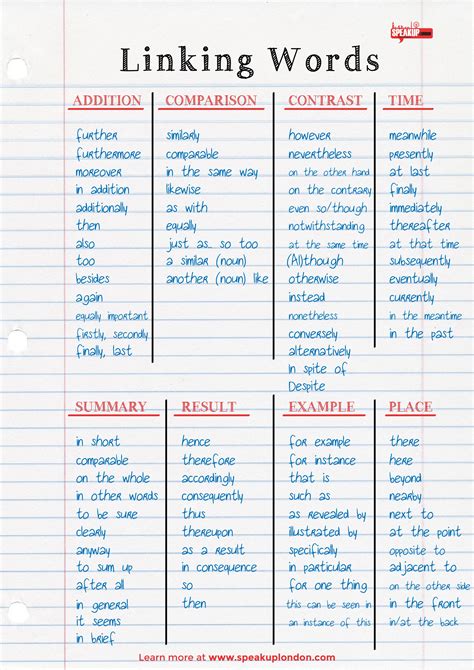 SPEAKUP
Linking Words
ADDITION
further
furthermore
moreover
in addition
additionally
then
also
too
besides
again
equally important
firstly, secondly
finally, last
COMPARISON
similarly
comparable
in the same way
likewise
as with
equally
just as... so too
a similar (noun)
another (noun) like
CONTRAST
however
nevertheless
on the other hand
on the contrary
even so/though
notwithstanding
at the same time
(Al)though
otherwise
instead
nonetheless
conversely
alternatively
in spite of
Despite
TIME
meanwhile
presently
at last
finally
immediately
thereafter
at that time
subsequently
eventually
currently
in the meantime
in the past
SUMMARY
in short
comparable
on the whole
in other words
to be sure
clearly
anyway
to sum up
after all
in general
it seems
in brief
RESULT
hence
therefore
accordingly
consequently
thus
thereupon
as a result
in consequence
so
then
EXAMPLE
for example
for instance
that is
such as
as revealed by
illustrated by
specifically
in particular
for one thing
this can be seen in
an instance of this
PLACE
there
here
beyond
nearby
next to
at the point
opposite to
adjacent to
on the other side
in the front
in/at the back
Learn more at www.speakuplondon.com